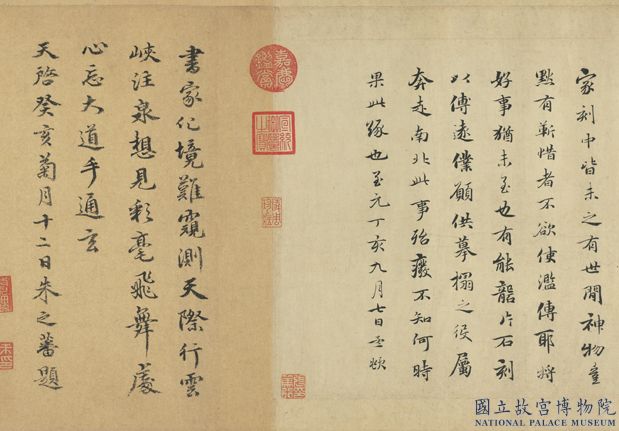 家刻中皆未之有世間神物
默有蘄惜者不欲使濫傳耶將
好事猶未至也有能龍片石刻
以傳遠僕願供摹搨之役屬
奔走南北此事殆癈不知何時
果此緣也至元丁亥九月七日孟頫
書家化境難窺測天際行雲
峽注泉想見彩毫飛舞處
心忘大道手通玄
天啓癸亥菊月十二日朱之蕃題
嘉慶鑑賞
國立故宮博物院
NATIONAL PALACE MUSEUM